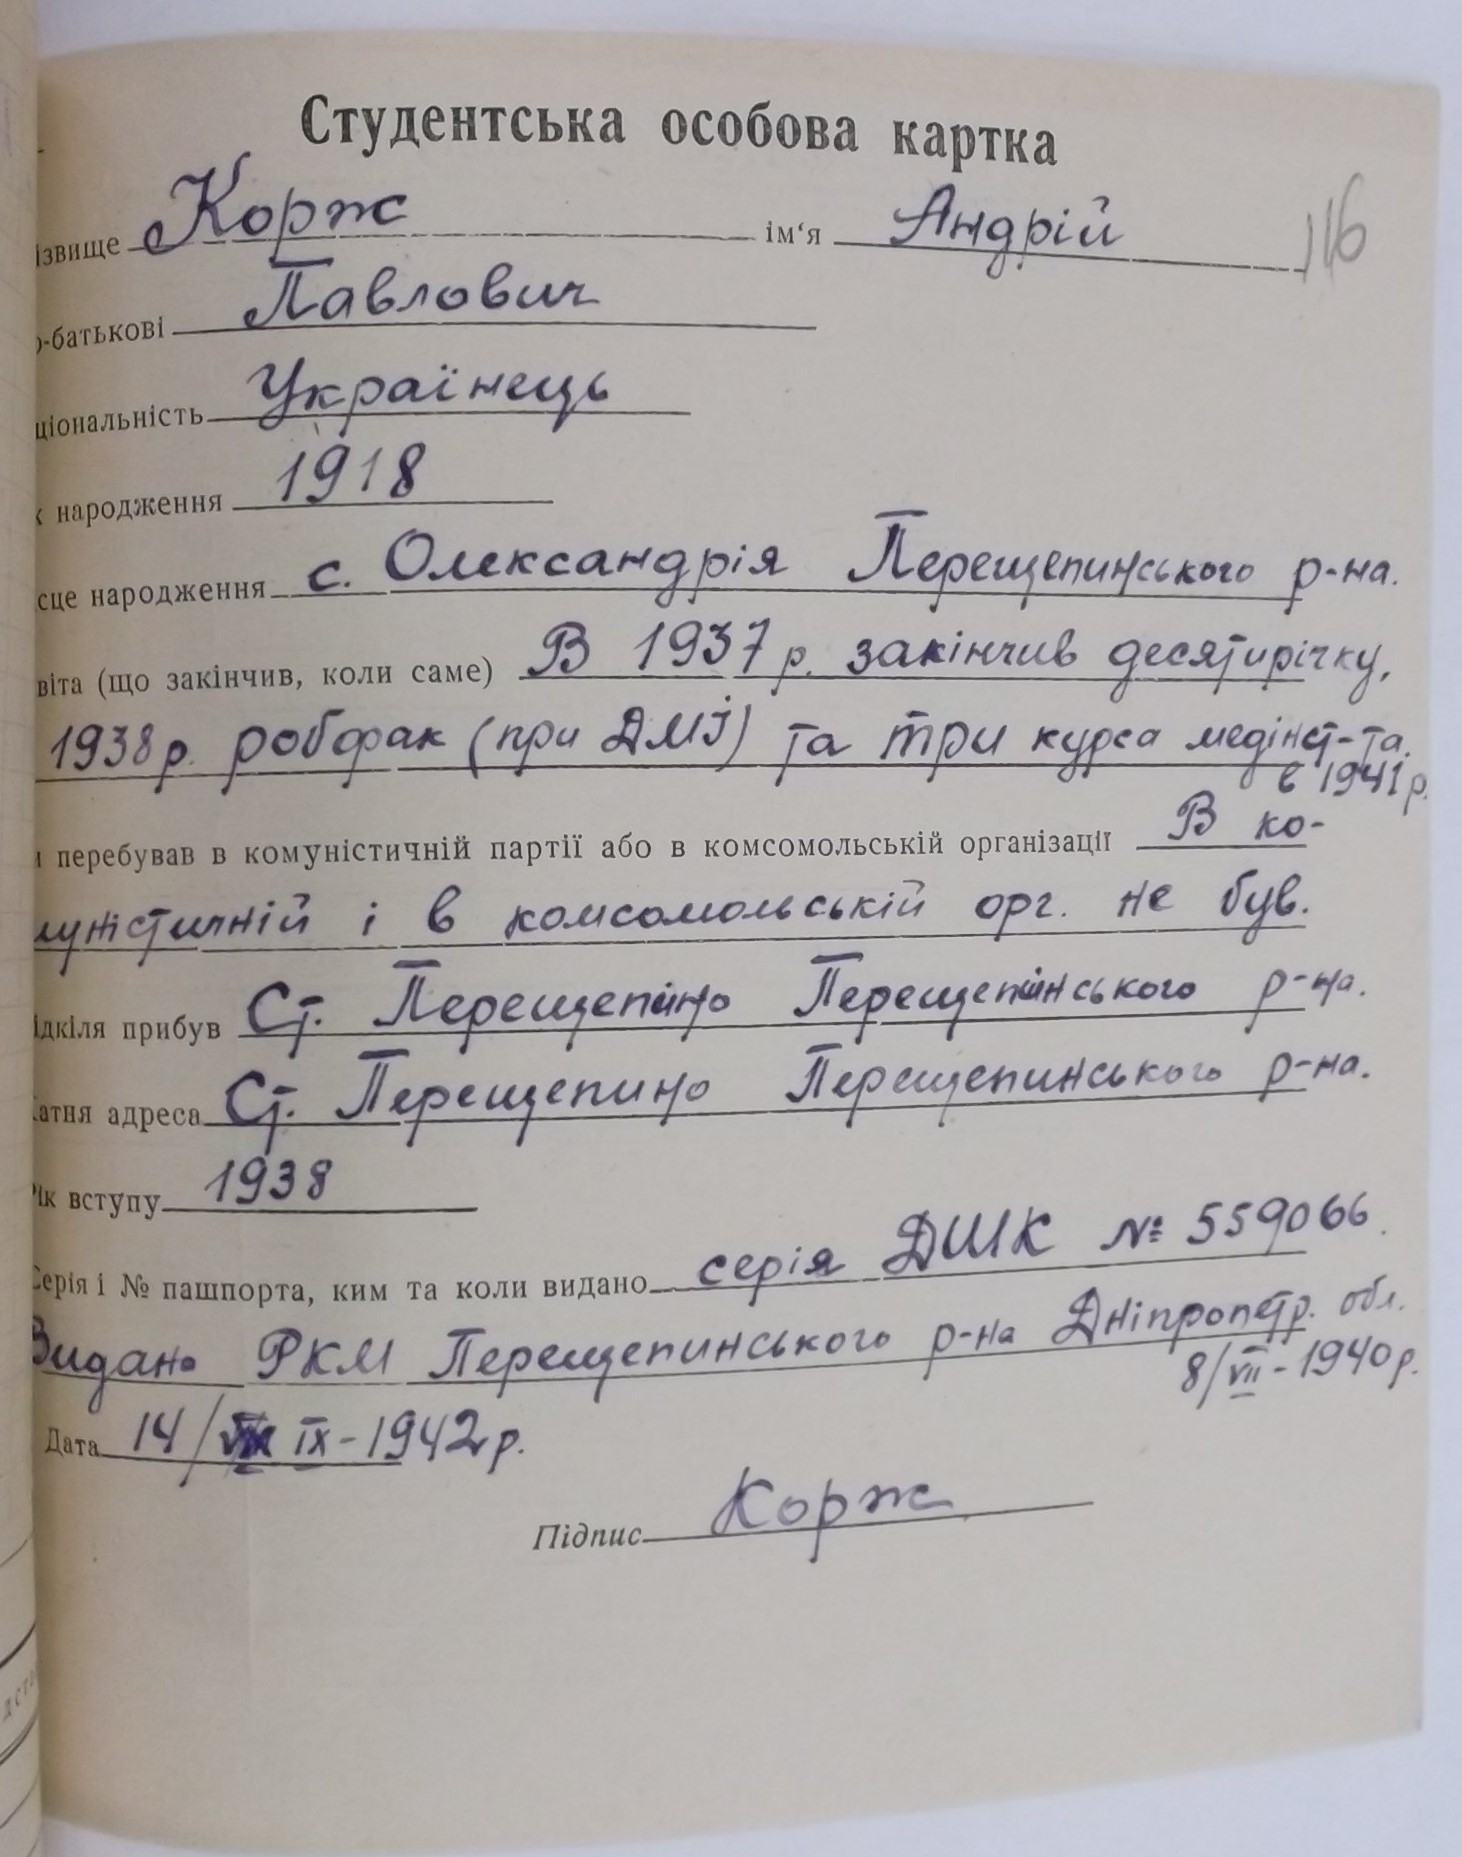 Студентська особова картка
ізвище Корж ім‘я Андрій 116
о-батькові Павлович
ціональність Українець
к народження 1918
сце народження с. Олександрія Перещепинського р-на.
віта (що закінчив, коли саме) В 1937 р. закінчив десятирічку,
1938 р. робфак (при ДМІ) та три курса медінст-та.
в 1941 р.
и перебував в комуністичній партії або в комсомольській організації В ко-
муністичній і в комсомольській орг. не був.
ідкіля прибув Ст. Перещепино Перещепинського р-на.
атня адреса Ст. Перещепино Перещепинського р-на.
Рік вступу 1938
Серія і № пашпорта, ким та коли видано серія ДШК № 559066.
Видано РКМ Перещепинського р-на Дніпропетр. обл.
8/VII - 1940 р.
Дата 14/ IX - 1942 р.
Підпис Корж